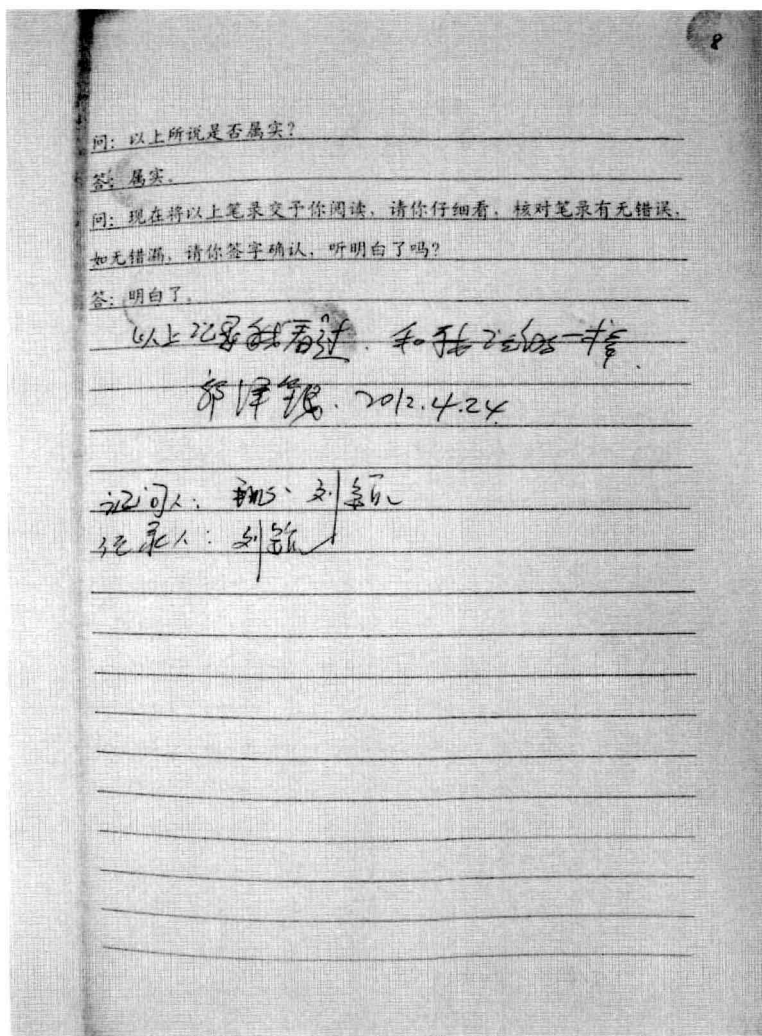 8
问：以上所说是否属实？
答：属实。
问：现在将以上笔录交予你阅读，请你仔细看，核对笔录有无错误，
如无错漏，请你签字确认，听明白了吗？
答：明白了。
以上记录我看过，和我说的一样。
2012.4.24
询问人： 刘
记录人：刘